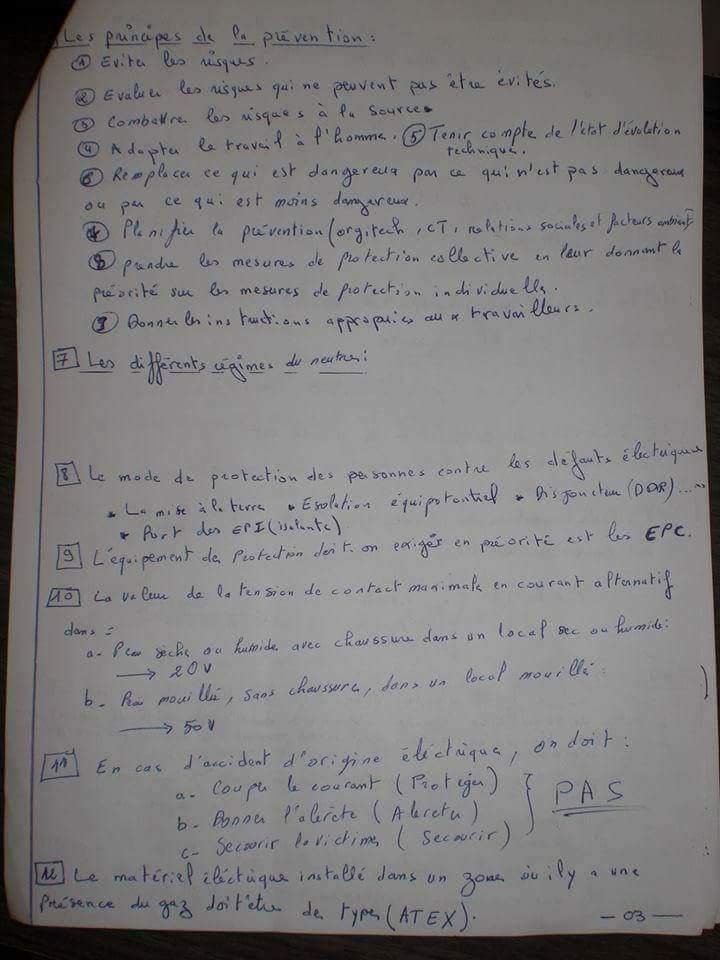 Les principes de la prévention :
① Eviter les risques.
② Evaluer les risques qui ne peuvent pas être évités.
③ Combattre les risques à la source
④ Adapter le travail à l'homme. ⑤ Tenir compte de l'état d'évolution
technique.
⑥ Remplacer ce qui est dangereux par ce qui n'est pas dangereux
ou par ce qui est moins dangereux.
⑦ Planifier la prévention (orgitech, CT, relations sociales et facteurs ambiants
⑧ prendre les mesures de protection collective en leur donnant la
priorité sur les mesures de protection individuelle.
⑨ Donner les instructions appropriées aux travailleurs.
7 Les différents régimes du neutre :
8 Le mode de protection des personnes contre les défauts électriques
* La mise à la terre * Esolation équipotentiel * Disjoncteur (DDR) ...
* Port des EPI (isolante)
9 L'équipement de Protection doit on exigés en priorité est les EPC.
10 La valeur de la tension de contact maximale en courant alternatif
dans :
a- Peau sèche ou humide avec chaussure dans un local sec ou humide :
→ 20V
b- Peau mouillée, sans chaussure, dans un local mouillé :
→ 50V
11 En cas d'accident d'origine éléctrique, on doit :
a- Couper le courant (Protéger)
b- Donner l'alerète (Alereter)
c- Secourir la victime (Secourir)
} PAS
12 Le matériel éléctrique installé dans un zone où il y a une
Présence du gaz doit être de type (ATEX).
— 03 —